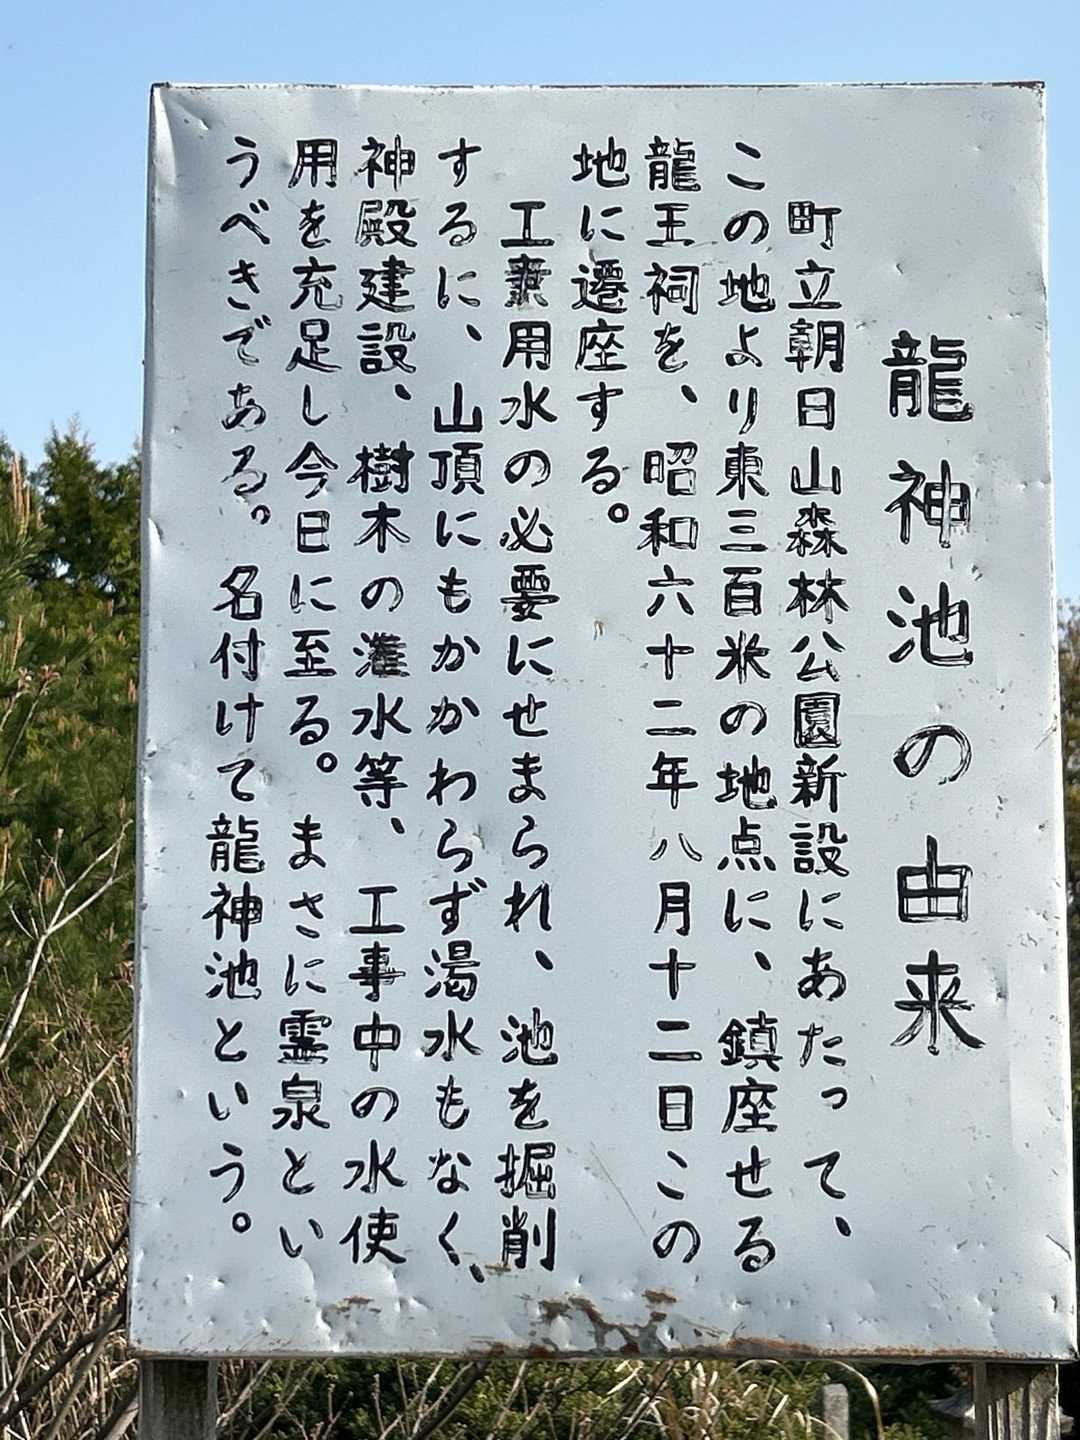 龍神池の由来
町立朝日山森林公園新設にあたって、
この地より東三百米の地点に、鎮座せる
龍王祠を、昭和六十二年八月十二日この
地に遷座する。
工業用水の必要にせまられ、池を掘削
するに、山頂にもかかわらず渇水もなく、
神殿建設、樹木の潅水等、工事中の水使
用を充足し今日に至る。まさに霊泉とい
うべきである。名付けて龍神池という。